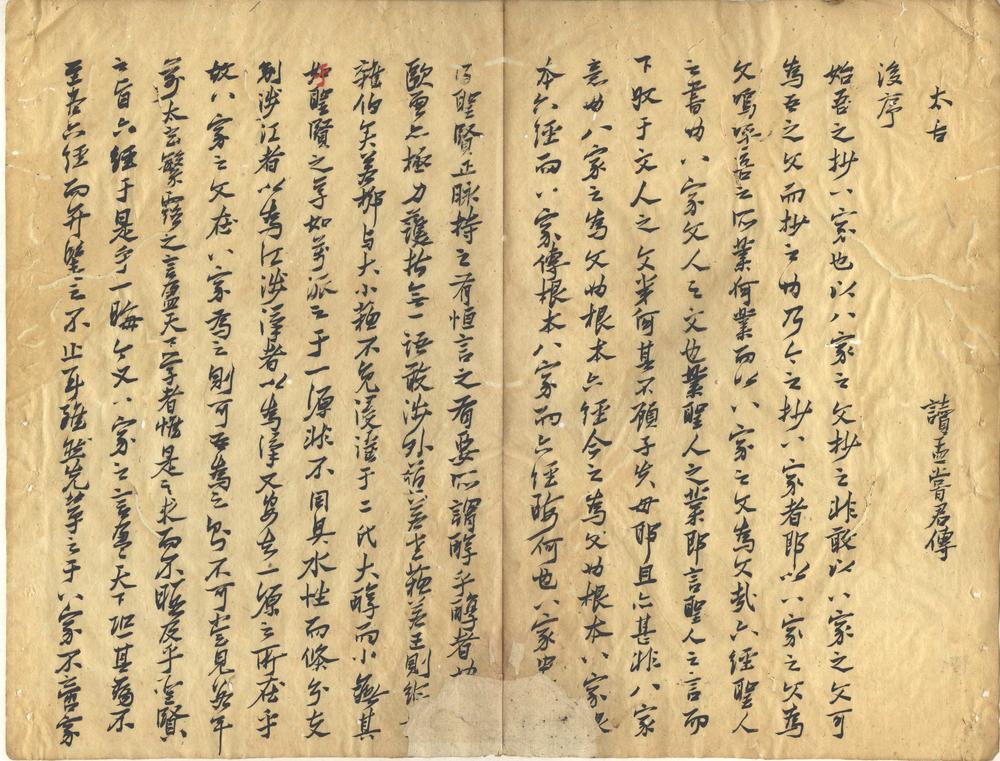 太古
讀孟嘗君傳
後序
始吾之抄八家也以八家之文抄之非敢以八家之文可
為吾之文而抄之也乃今之抄八家者耶以八家之文為
文嗚呼吾之所業何業而以八家之文為文哉六經聖人
之書也八家文人之文也業聖人之業耶言聖人之言而
下取于文人之文米何其不顧于失毋耶且六甚非八家
意也八家之為文也根本六經今之為文也根本八家
本六經而八家傳根本八家而六經晦何也八家
聖賢正脉持之有恒言之有要所謂醇乎醇者也
歐曾亦極力護持無一語敢涉外若老蘇若王則
雜伯矣若柳與大小蘇不免浸淫于二氏大醇而小無其
如聖賢之學如萬派之于一源非不同具水性而條分支
別涉江者以為江涉漢者以為漢又安在一源之所在乎
故八家之文在八家為之則可吾為之則不可
太玄繁露之言盈天下學者惟是之求而不暇反乎聖賢
之旨六經于是乎一晦今又八家之言盈天下恐其弊不
至者六經而弁髦之不止耳雖然先輩之于八家不啻家